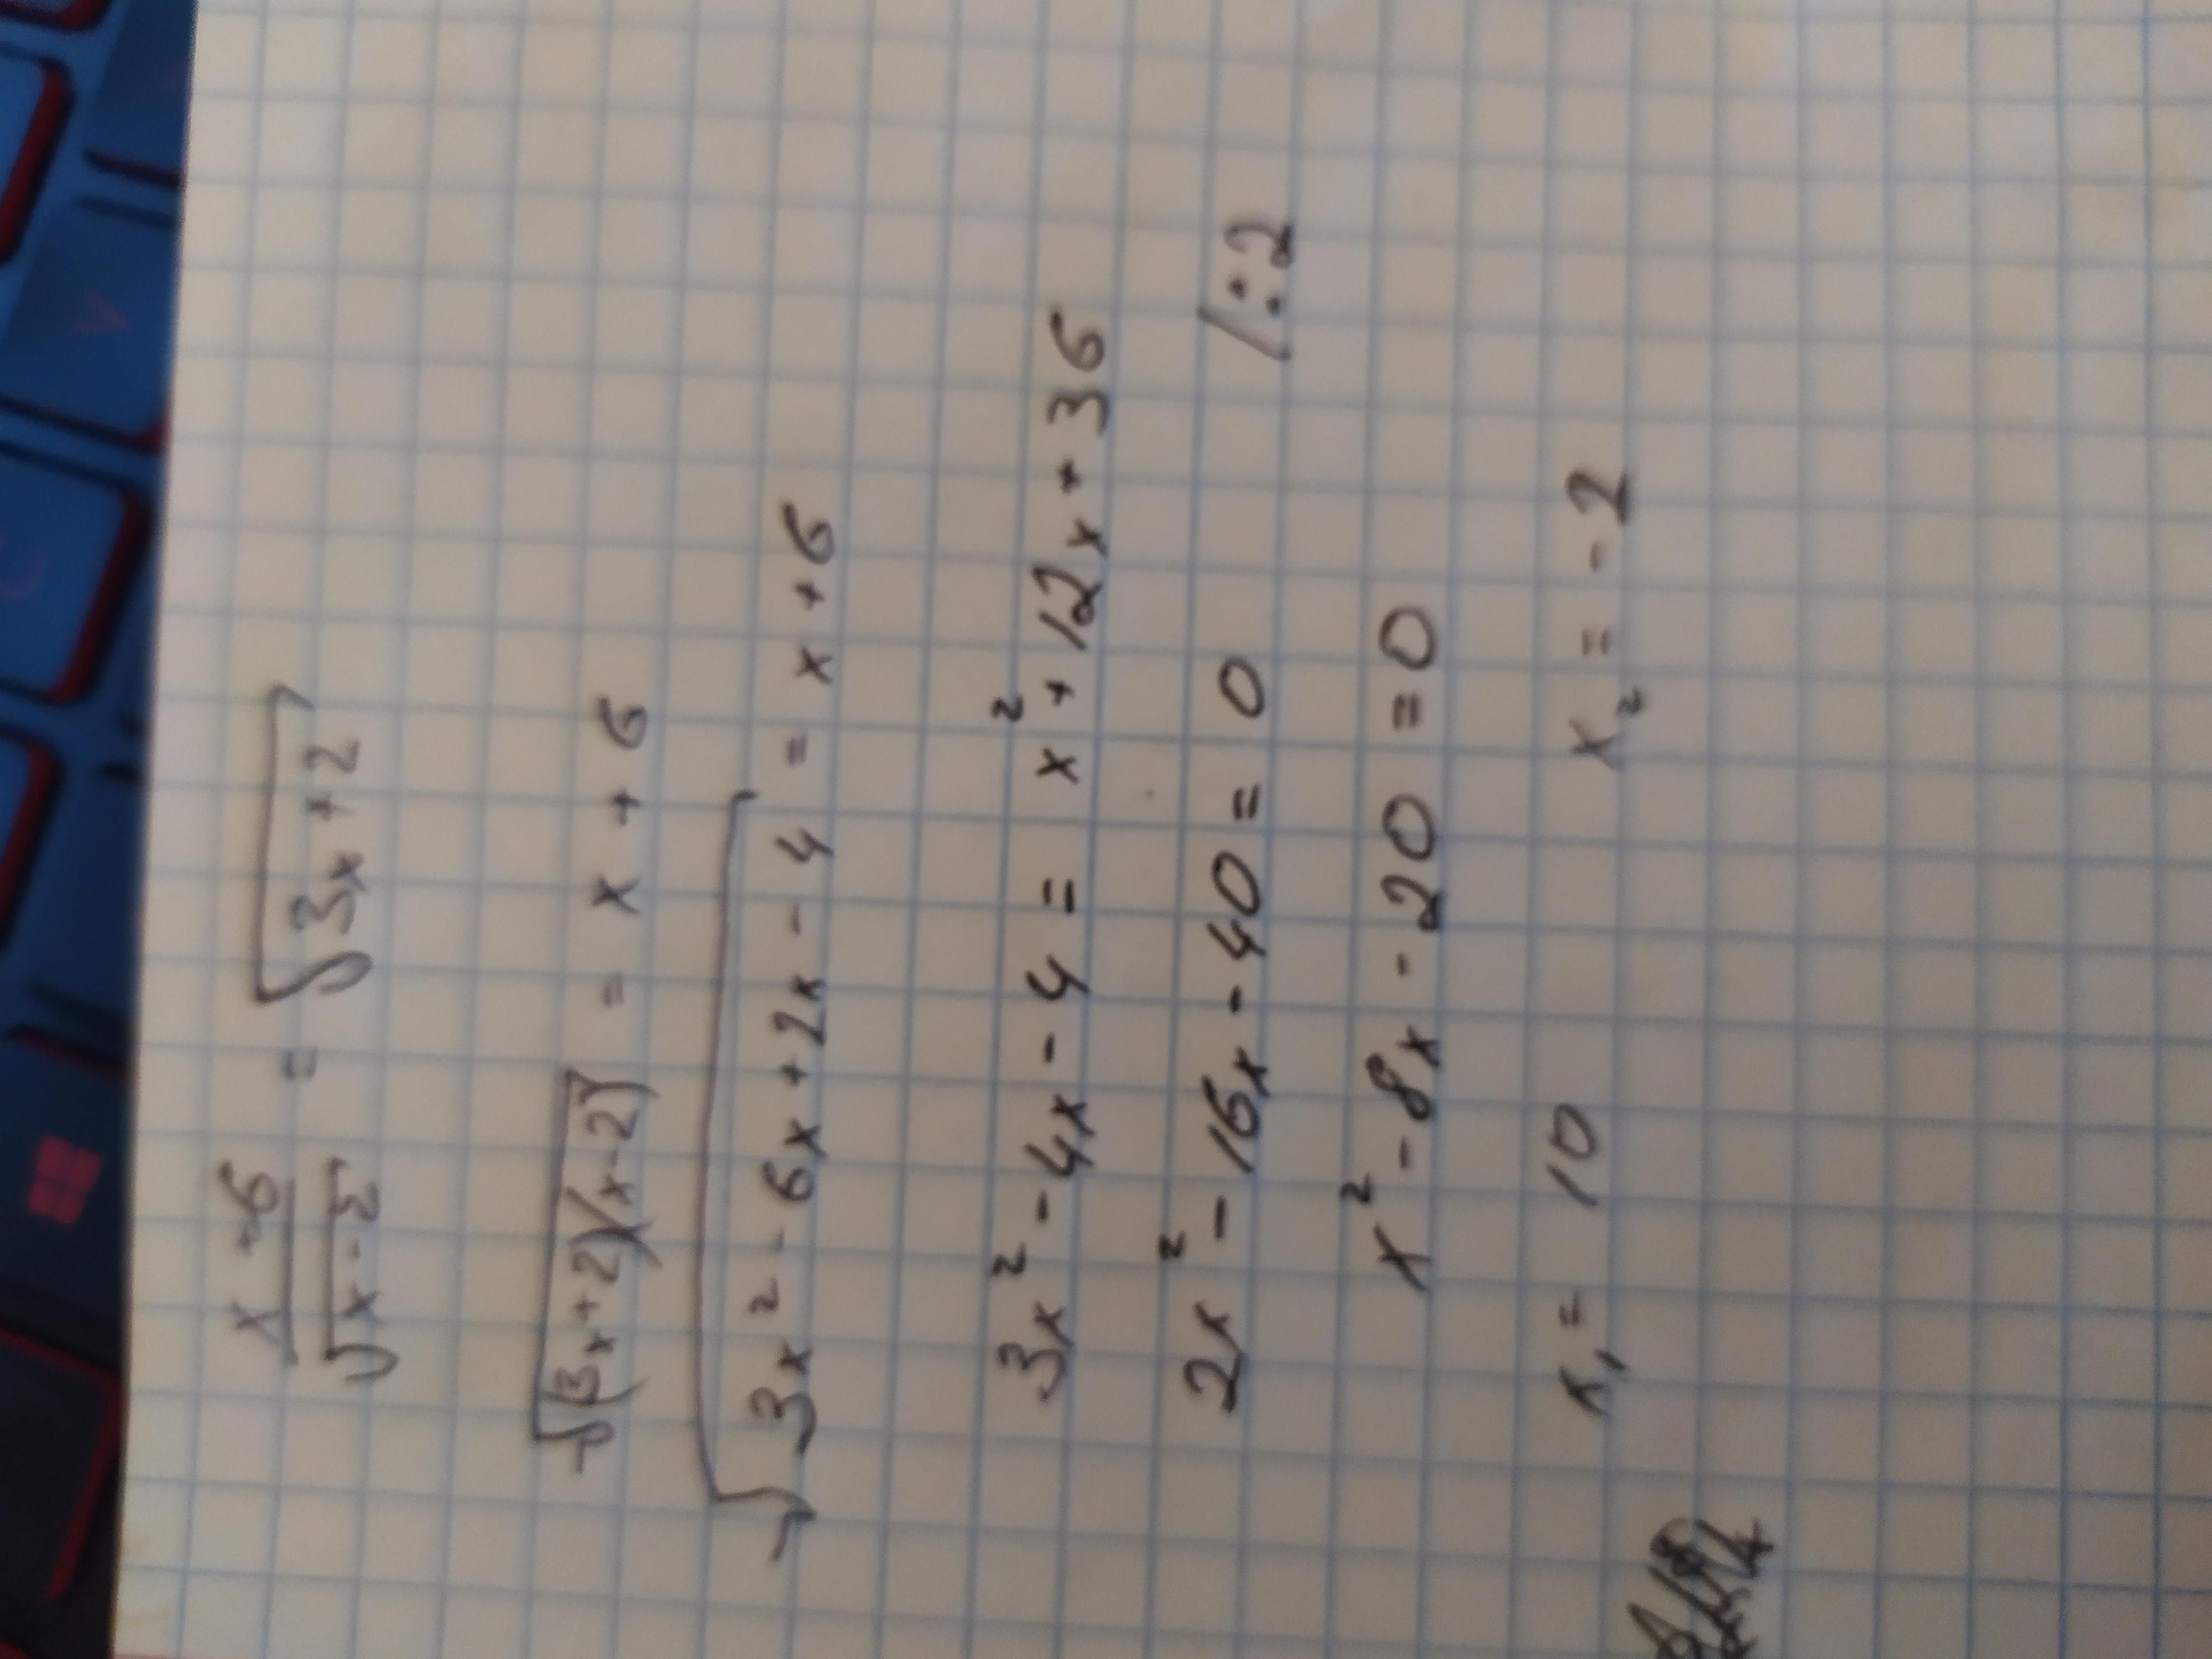 x+6/√x-2 = √3x+2
√(3x+2)(x-2) = x+6
√3x²-6x+2x-4 = x+6
3x²-4x-4 = x²+12x+36
2x²-16x-40=0 /:2
x²-8x-20=0
x₁= 10 x₂=-2